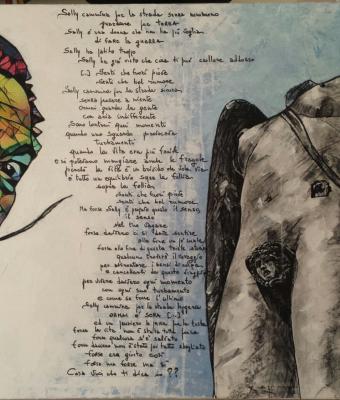 Sally cammina per la strada senza nemmeno
guardare per TERRA
Sally è una donna che non ha più voglia
di fare la guerra
Sally ha patito troppo
Sally ha già visto che cosa ti può crollare addosso
[..] Senti che fuori piove
senti che bel rumore
Sally cammina per la strada sicura
senza pensare a niente
ormai guarda la gente
con aria indifferente
Sono lontani quei momenti
quando uno sguardo provocava
turbamenti
quando la vita era più facile
e si potevano mangiare anche le fragole
perchè la vita è un brivido che vola via
è tutto un equilibrio sopra la follia
sopra la follia
senti che fuori piove
senti che bel rumore
Ma forse Sally è proprio questo il senso,
il senso
del tuo vagare
forse davvero ci si deve sentire
alla fine un po' male
forse alla fine di questa triste storia
qualcuno troverà il coraggio
per affrontare i sensi di colpa
e cancellarli da questo viaggio
per vivere davvero ogni momento
con ogni suo turbamento
e come se fosse l'ultimo
Sally cammina per la strada leggera
ORMAI è SERA [..]
ed un pensiero le passa per la testa
forse la vita non è stata tutta persa
forse qualcosa s'è salvato
forse davvero non è stato poi tutto sbagliato
forse era giusto così
forse ma forse ma sì
Cosa vuoi che ti dica io ??